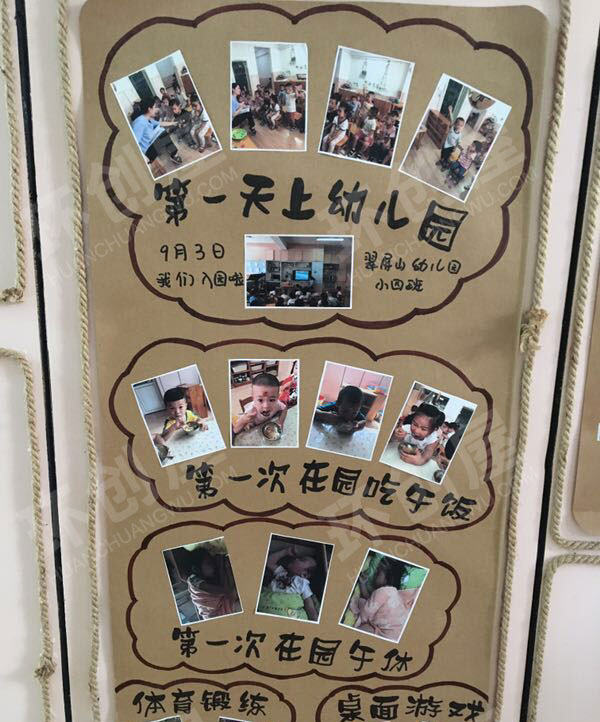 第一天上幼儿园
9月3日
我们入园啦
翠屏山幼儿园
小四班
第一次在园吃午饭
第一次在园午休
体育锻练
桌面游戏
环创屋
HUANCHUANGWU.COM